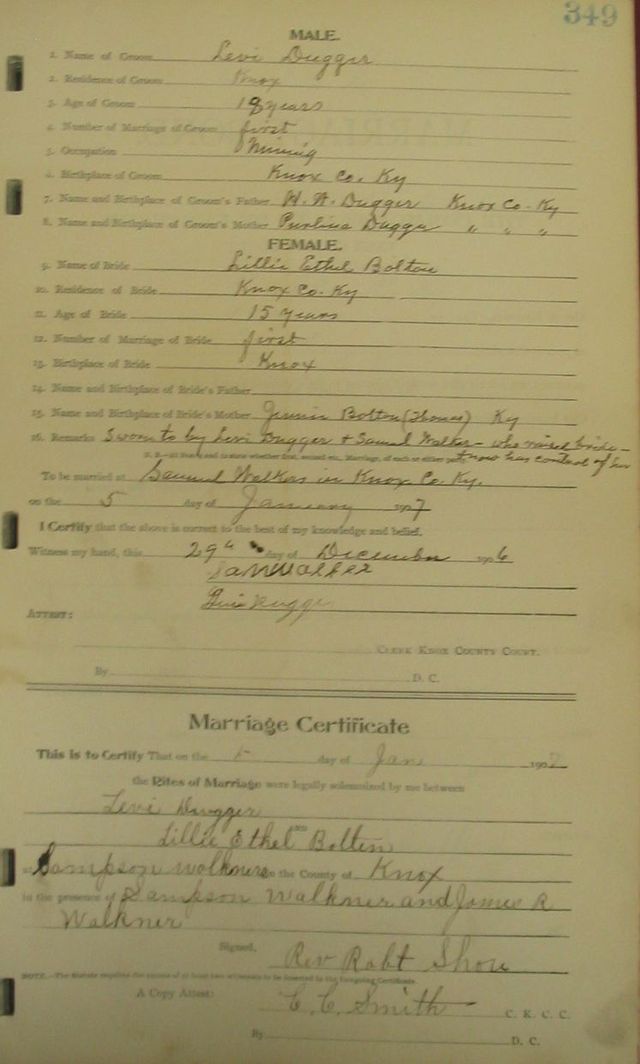 349
MALE.
1. Name of Groom Levi Dugger
2. Residence of Groom Knox
3. Age of Groom 18 years
4. Number of Marriage of Groom first
5. Occupation Mining
6. Birthplace of Groom Knox Co. Ky
7. Name and Birthplace of Groom's Father W. A. Dugger Knox Co. Ky
8. Name and Birthplace of Groom's Mother Dugger " " "
FEMALE.
9. Name of Bride Lillie Ethel Bolton
10. Residence of Bride Knox Co. Ky
11. Age of Bride 15 years
12. Number of Marriage of Bride first
13. Birthplace of Bride Knox
14. Name and Birthplace of Bride's Father
15. Name and Birthplace of Bride's Mother Jennie Bolton (Thomas) Ky
16. Remarks Sworn to by Levi Dugger & Samuel Walker - who raised bride -
& now has control of her
To be married at Samuel Walkers in Knox Co. Ky.
on the 5 day of January 1907
I Certify that the above is correct to the best of my knowledge and belief.
Witness my hand, this 29th day of December 1906
Sam Walker
Levi Dugger
ATTEST:
CLERK KNOX COUNTY COURT.
By D. C.
Marriage Certificate
This is to Certify That on the 5 day of Jan 1907
the Rites of Marriage were legally solemnized by me between
Levi Dugger
and
Lillie Ethel Bolten
at Sampson walkners in the County of Knox
in the presence of Sampson Walkner and James R
Walkner
Signed, Rev Robt Shou
NOTE.—The Statute requires the names of at least two witnesses to be inserted in the foregoing Certificate.
A Copy Attest: E. C. Smith C. K. C. C.
By D. C.